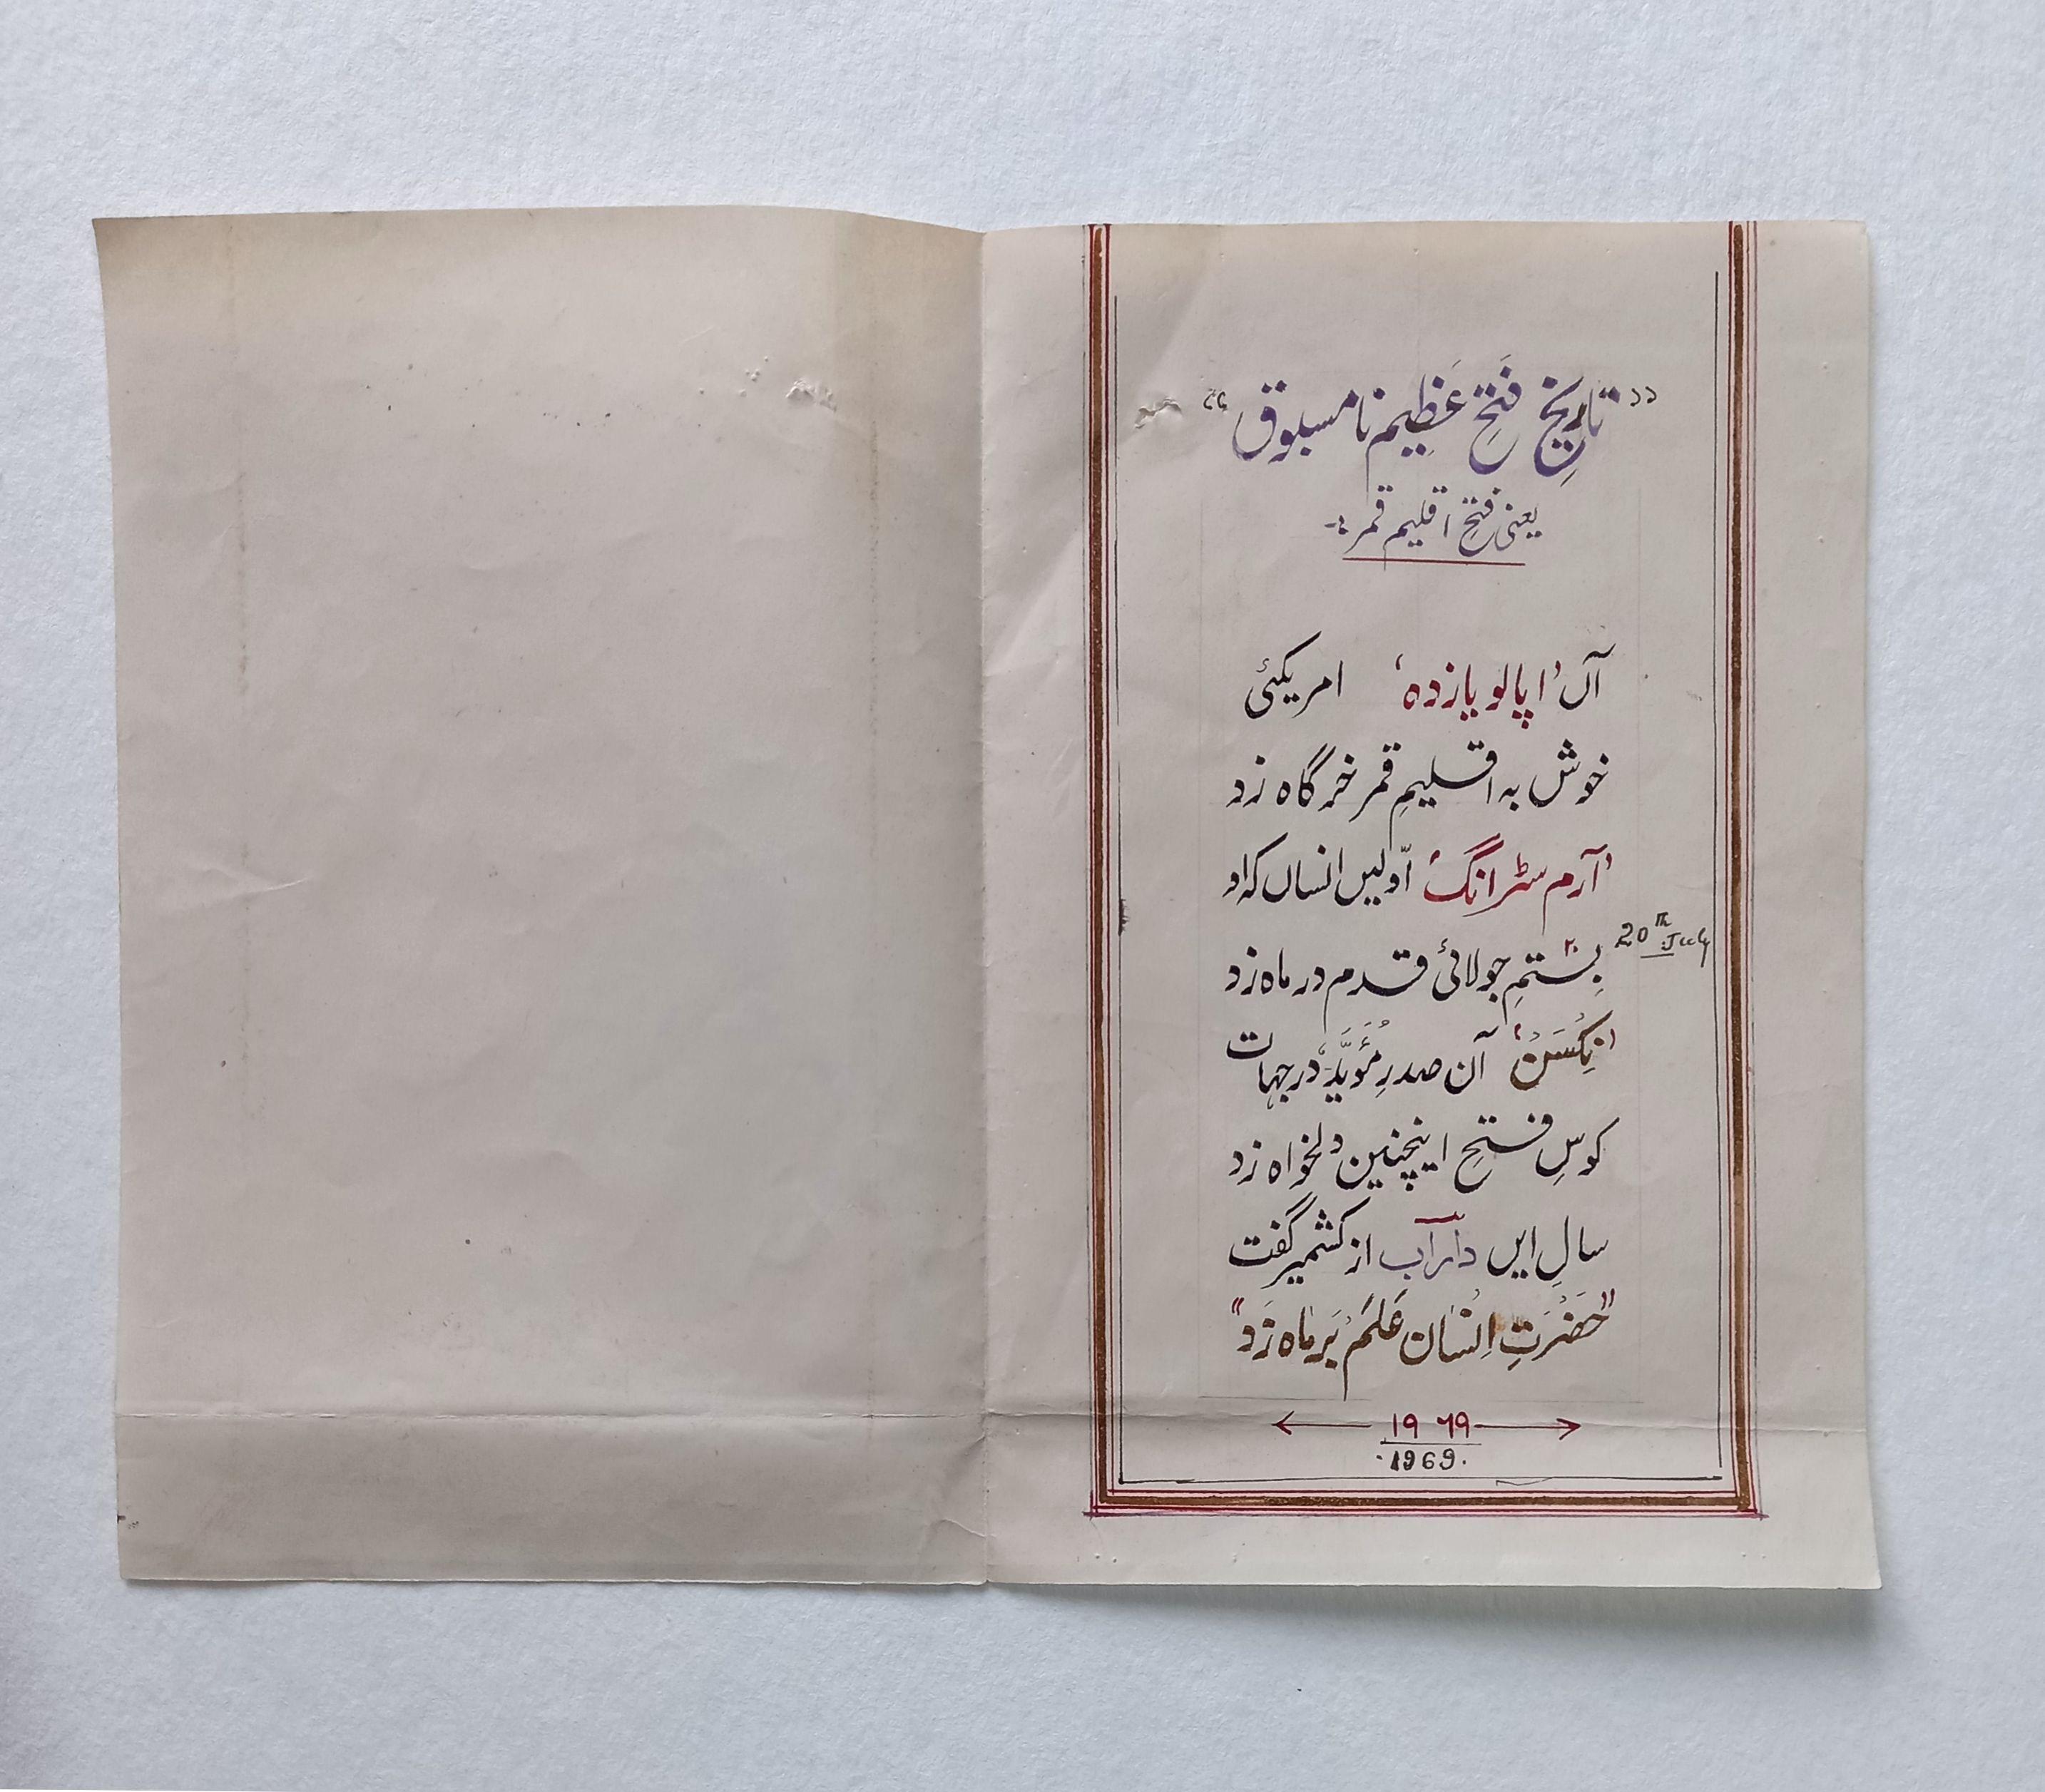 ”تاریخِ فَتحِ عَظِیمِ نا مسبوق“
یعنی فتحِ اقلیمِ قمر :-
آں ’اپالو یازدہ‘ امریکئی
خوش بہ اقلیمِ قمر خرگاہ زد
’آرم سٹرانگ‘ اوّلیں انساں کہ او
بِستمِ جولائی قدم در ماہ زد ۲۰ 20th July
’نِکْسَنْ‘ آن صدرِ مُؤَیَّدْ در جہات
کوسِ فتحِ اینچنین دلخواہ زد
سالِ ایں داراب از کشمیر گفت
”حَضْرَتِ اِنْسَان عَلَمْ بَر مَاہ زَد“
۱۹ ۶۹
1969